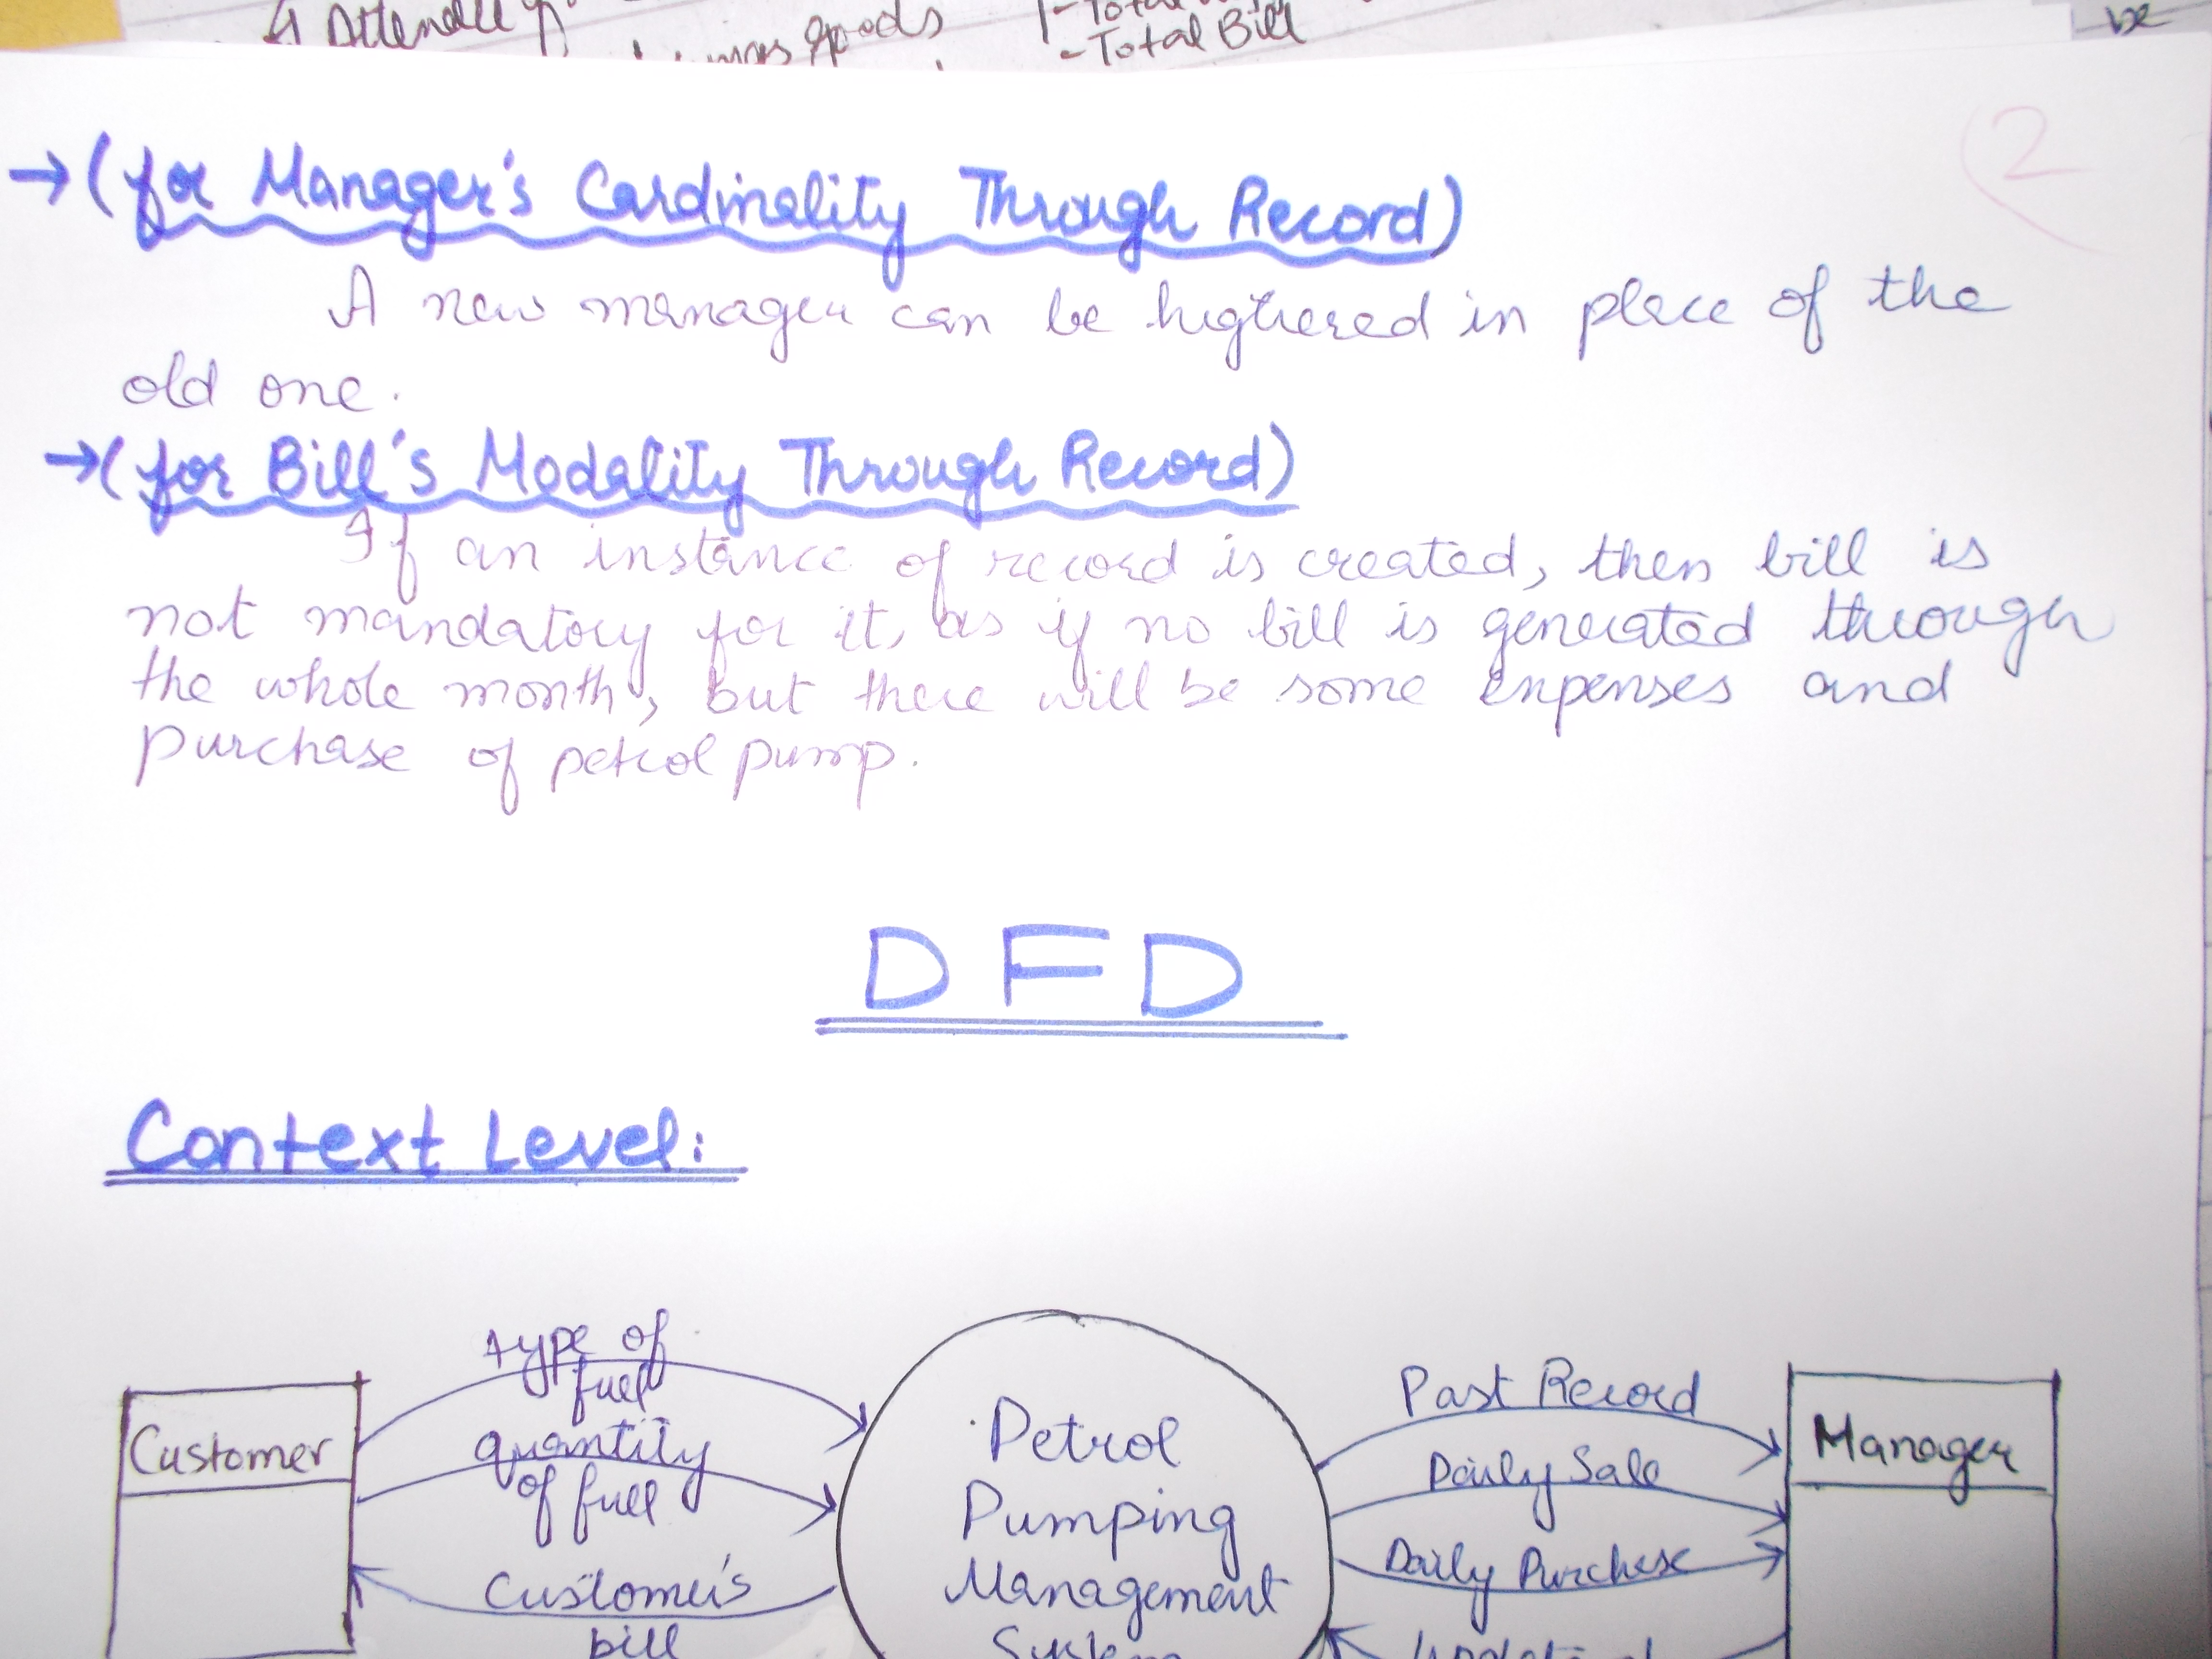 Attendence
goods
- Total Bill
be
2
→ (for Manager's Cardinality Through Record)
A new manager can be highered in place of the
old one.
→ (for Bill's Modality Through Record)
If an instance of record is created, then bill is
not mandatory for it, as if no bill is generated through
the whole month, but there will be some expenses and
purchase of petrol pump.
DFD
Context Level:
type of
fuel
quantity
of fuel
Customer's
bill
Customer
Petrol
Pumping
Management
System
Past Record
Daily Sale
Daily Purchase
Manager